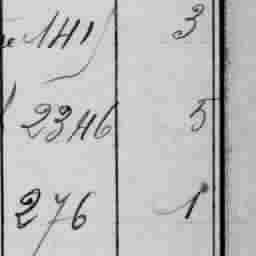 141 3
2346 5
276 1